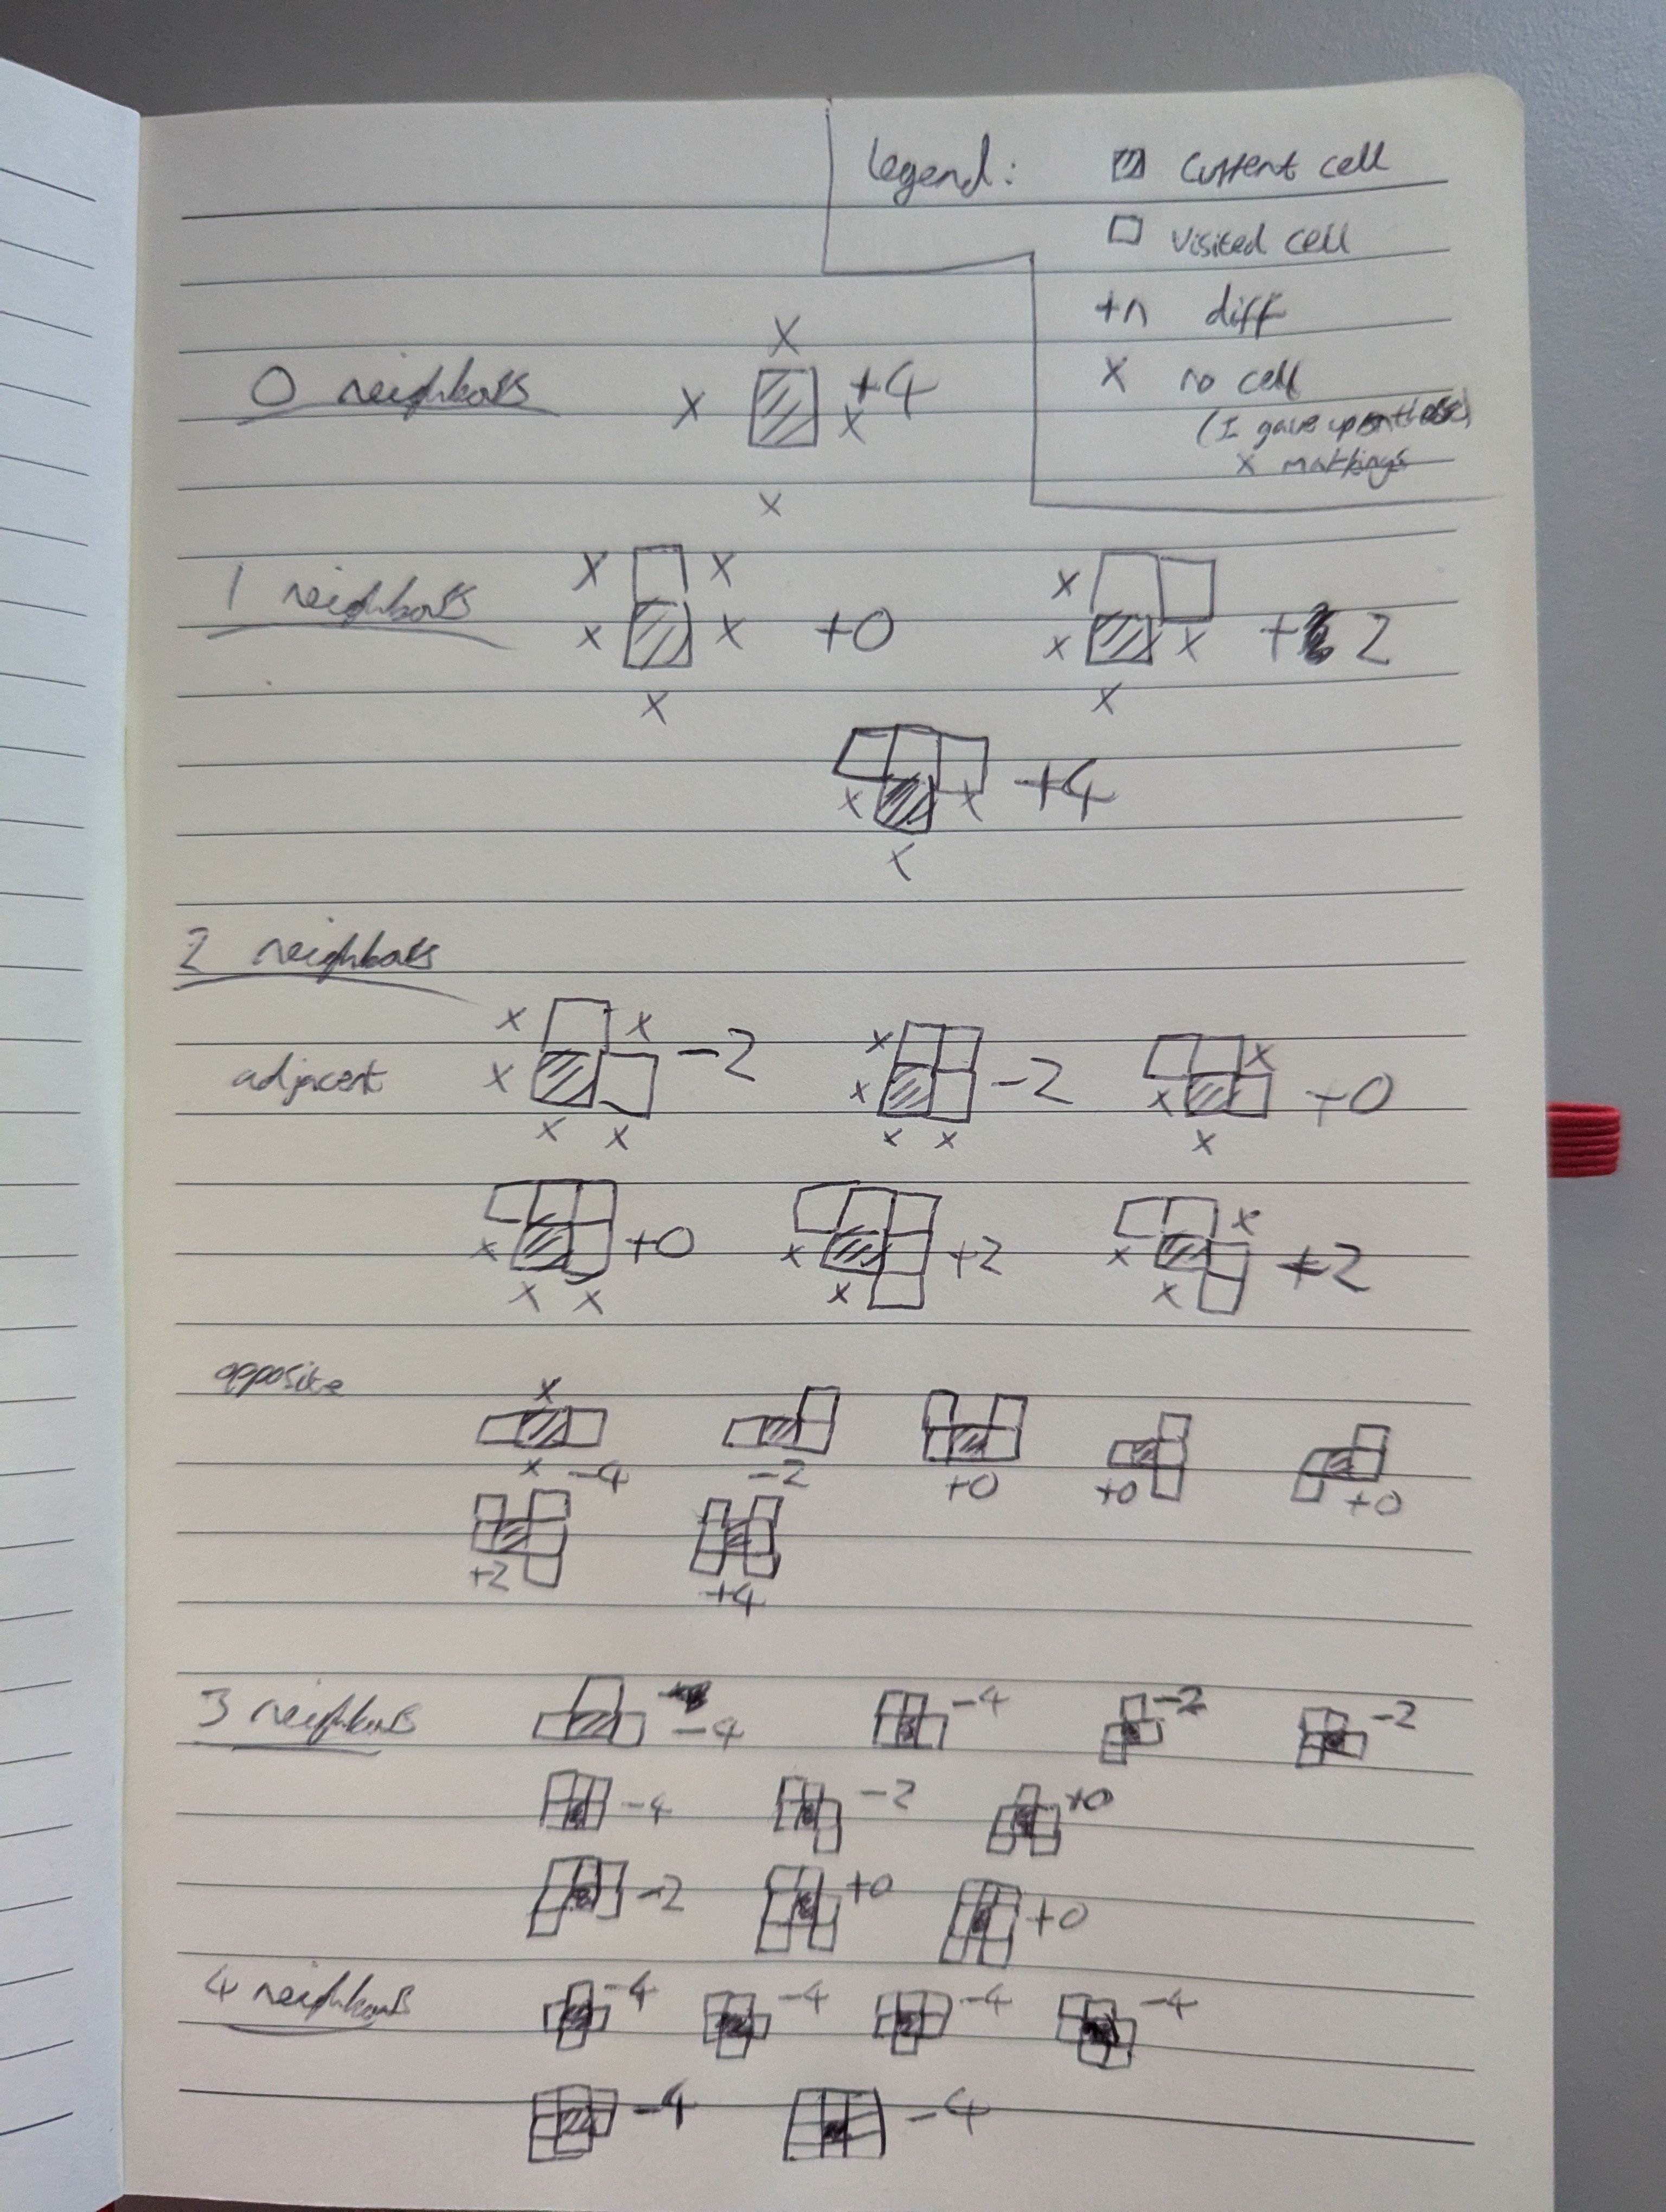 legend:
current cell
visited cell
+n diff
x no cell
(I gave up on these)
x markings
0 neighbors
x
x +4
x
x
1 neighbors
x x
x x +0
x
x
x x + 2
x
x x +4
x
2 neighbors
adjacent
x x
x -2
x x
x
x -2
x x
x
x +0
x
x +0
x x
x +2
x
x
x +2
x
opposite
x
x -4
-2
+0
+0
+0
+2
+4
3 neighbors
-4
-4
-2
-2
-4
-2
+0
-2
+0
+0
4 neighbors
-4
-4
-4
-4
-4
-4